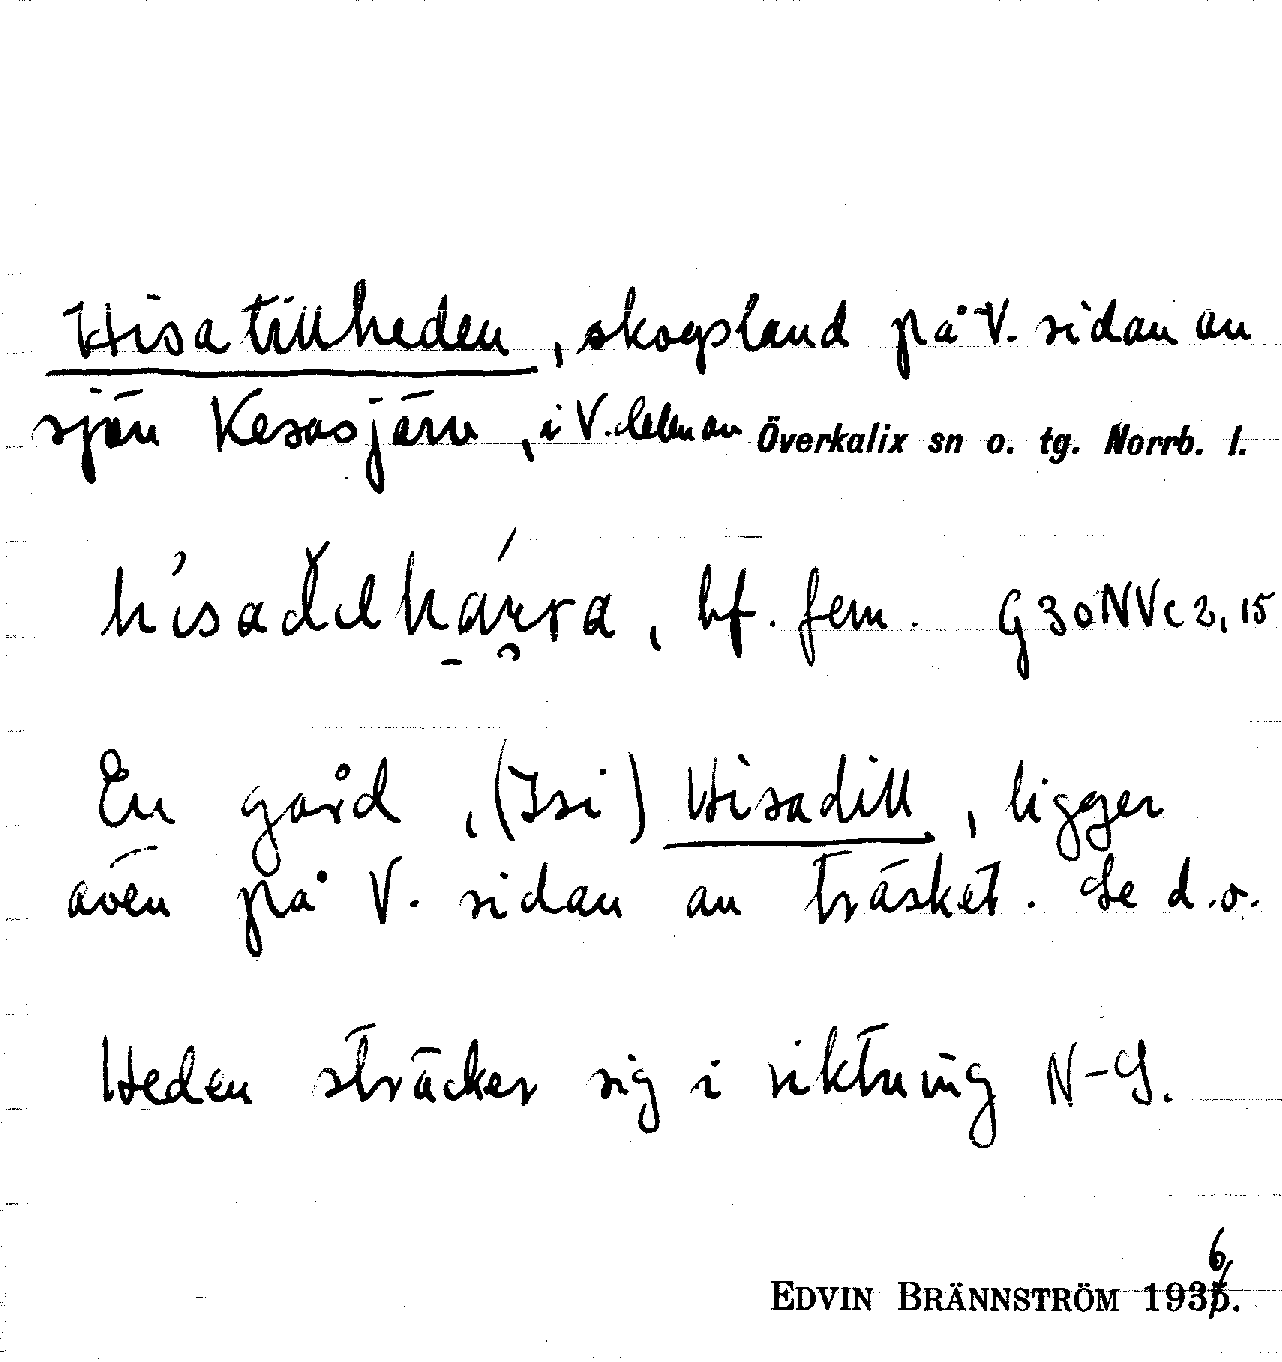 Hisatillheden, skogsland på V. sidan av
sjön Kesasjärv, i V. delen av Överkalix sn o. tg. Norrb. l.
bf. fem. G30NVc 2, 15
En gård, (Isi) Hisadill, ligger
även på V. sidan av träsket. Se d.o.
Heden sträcker sig i riktning N-S.
6
EDVIN BRÄNNSTRÖM 1935.